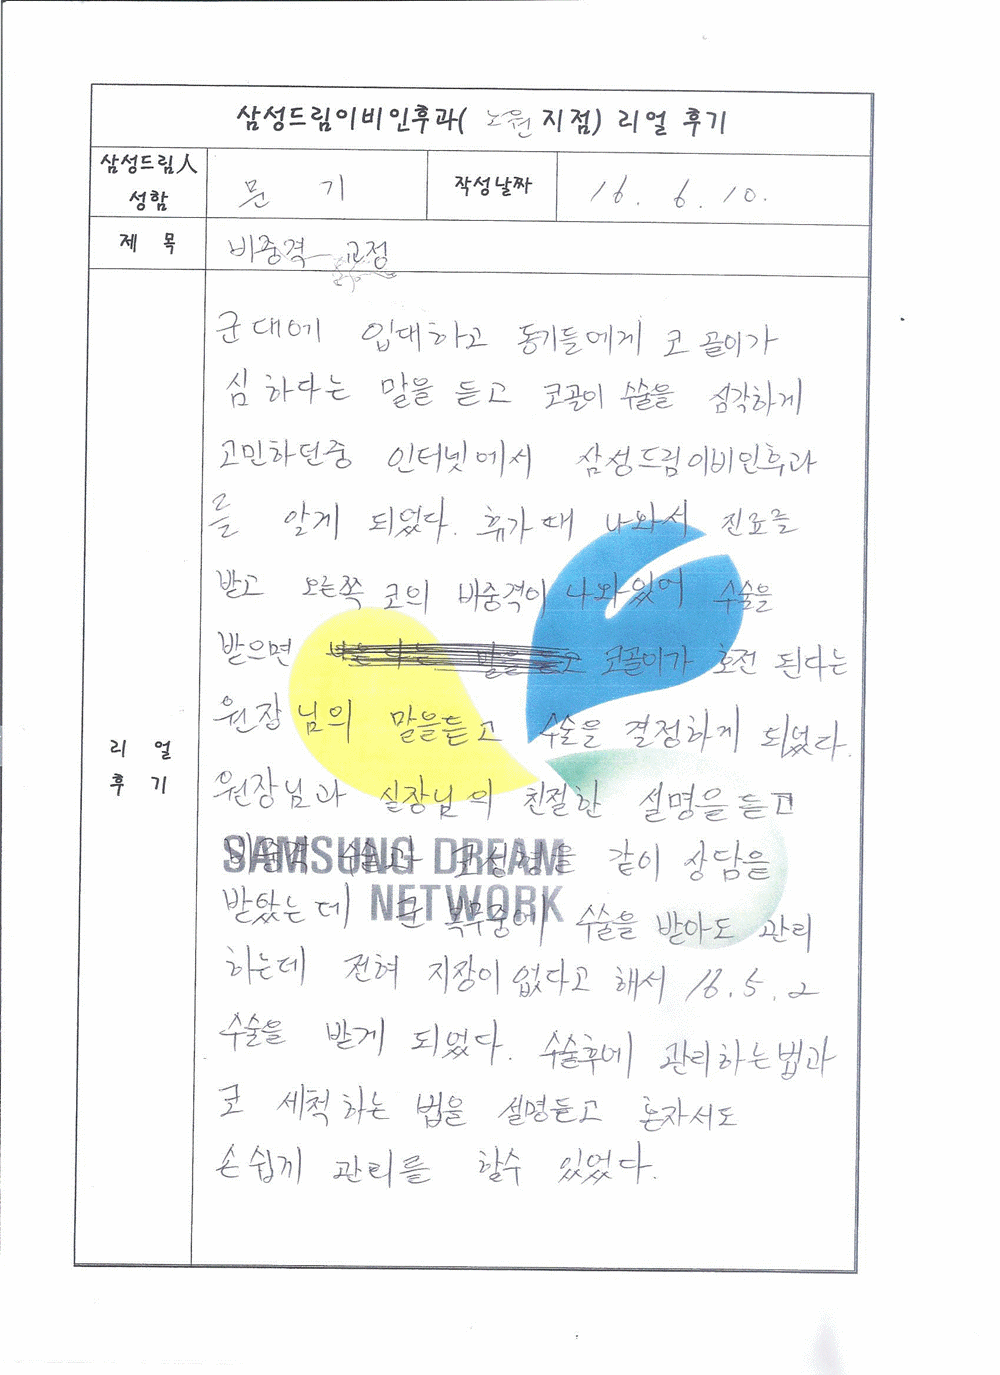 삼성드림이비인후과( 노원 지점) 리얼 후기
삼성드림人 성함
문 기
작성날짜
16. 6. 10.
제 목
비중격 교정
리 얼 후 기
군대에 입대하고 동기들에게 코 골이가
심 하다는 말을 듣고 코골이 수술을 심각하게
고민하던중 인터넷에서 삼성드림이비인후과
를 알게 되었다. 휴가 때 나와서 진료를
받고 오른쪽 코의 비중격이 나와있어 수술을
받으면 코골이가 호전 된다는
원장님의 말을듣고 수술을 결정하게 되었다.
원장님과 실장님의 친절한 설명을 듣고
비중격 수술과 코성형을 같이 상담을
받았는데 군 복무중에 수술을 받아도 관리
하는데 전혀 지장이 없다고 해서 16. 5. 2
수술을 받게 되었다. 수술후에 관리하는법과
코 세척하는 법을 설명듣고 혼자서도
손쉽게 관리를 할수 있었다.
SAMSUNG DREAM
NETWORK